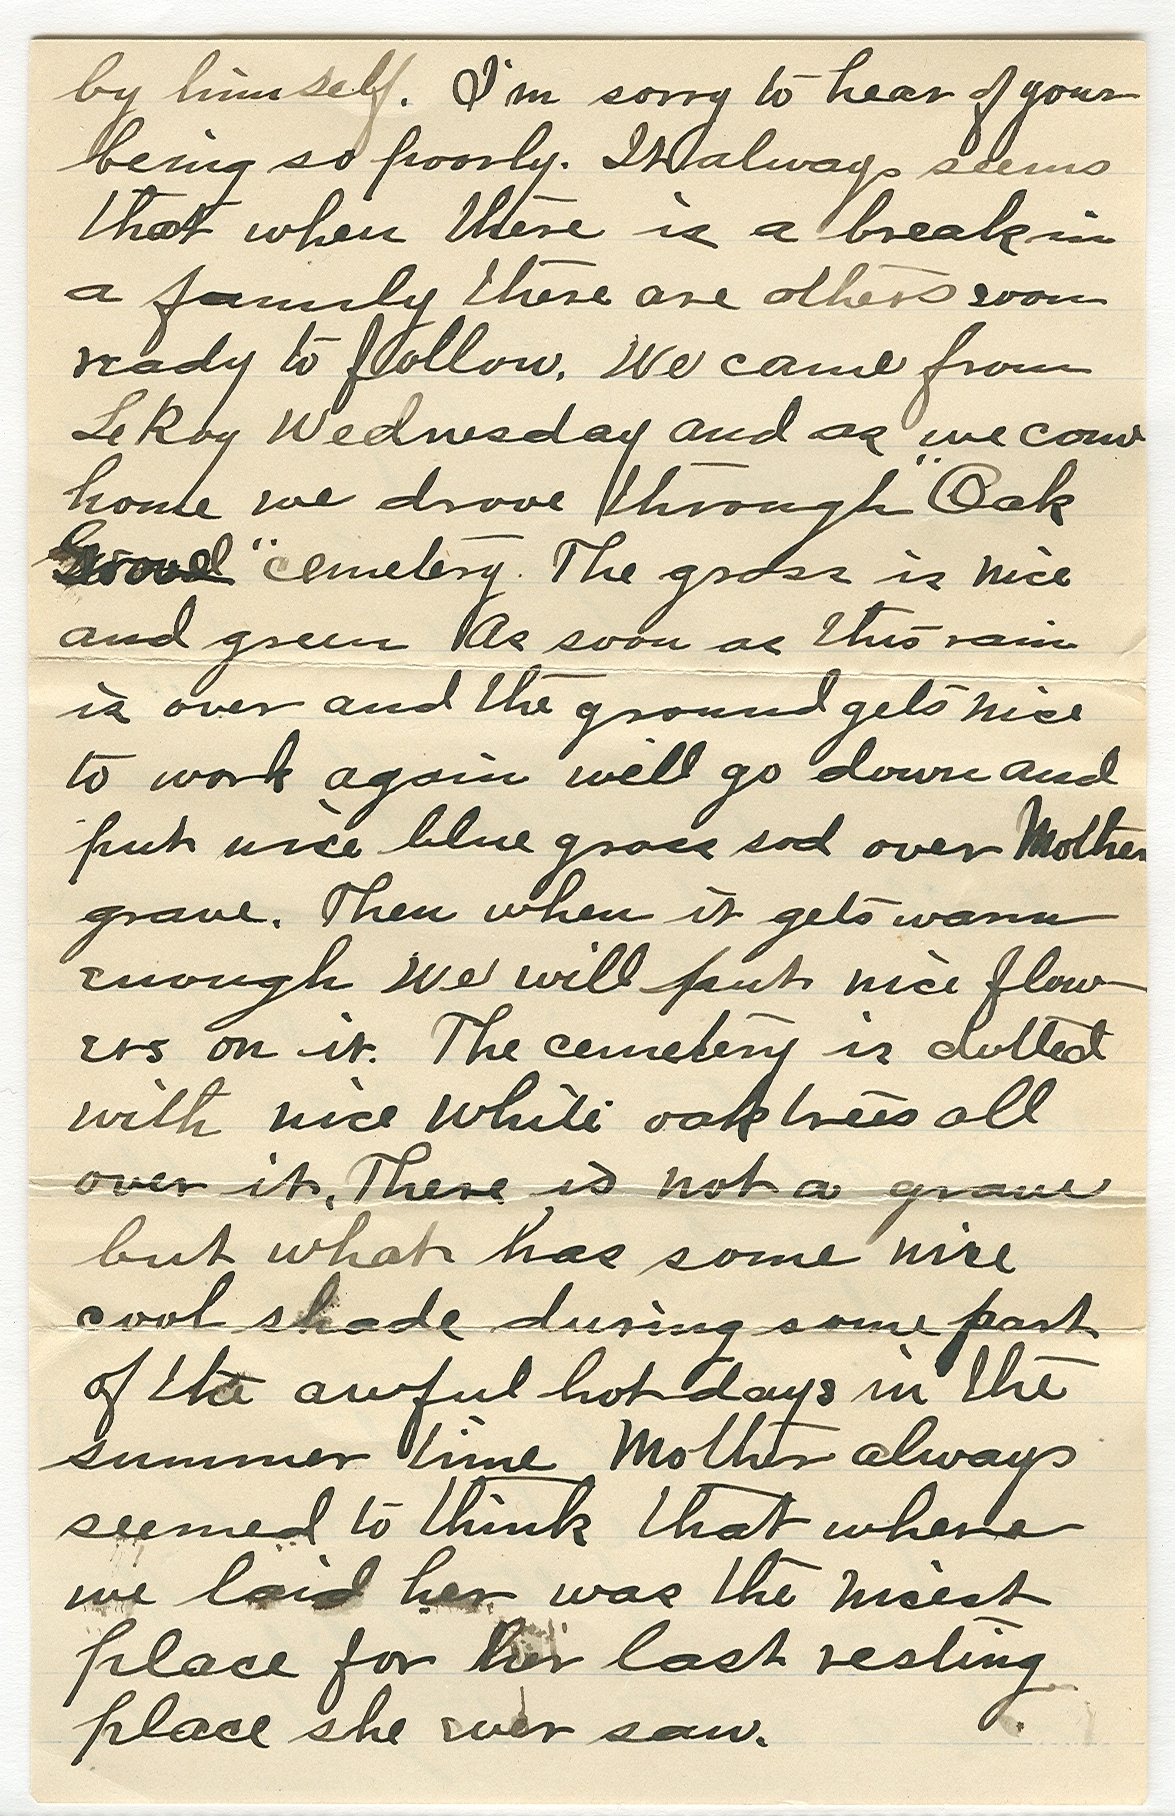 by himself. I'm sorry to hear of your
being so poorly. It always seems
that when there is a break in
a family there are others soon
ready to follow. We came from
LeRoy Wednesday and as we come
home we drove through "Oak
Grove" cemetery. The grass is nice
and green As soon as this rain
is over and the ground gets nice
to work again will go down and
put nice blue grass sod over Mother
grave. Then when it gets warm
enough We will put nice flow-
ers on it. The cemetery is dotted
with nice white oak trees all
over it, There is not a grave
but what has some nice
cool shade during some part
of the awful hot days in the
summer time Mother always
seemed to think that where
we laid her was the nicest
place for her last resting
place she ever saw.